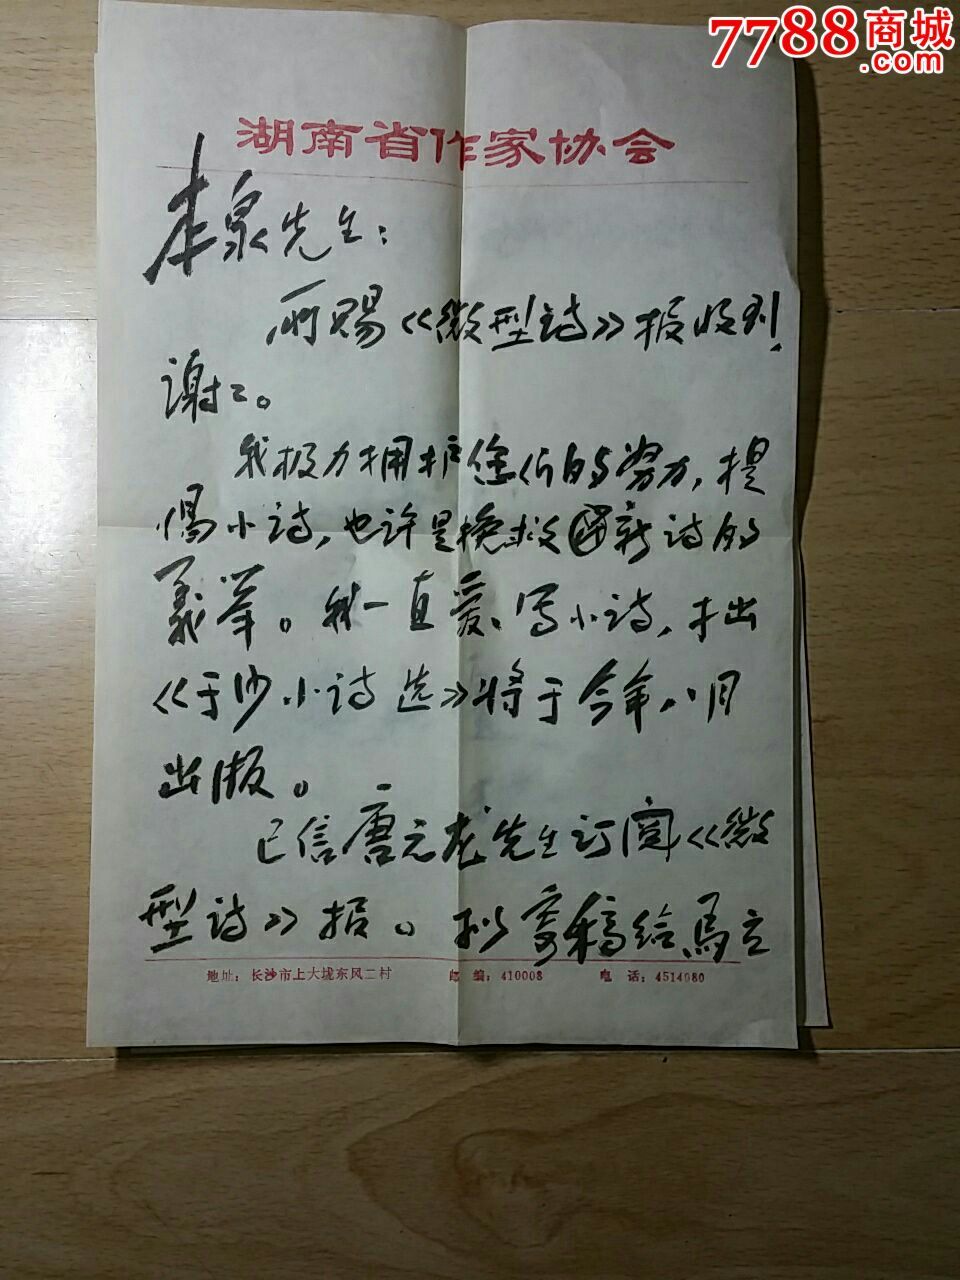 7788商城
.com
湖南省作家协会
本泉先生：
所赐《微型诗》报收到，
谢谢。
我极力拥护您们的努力，提
倡小诗，也许是挽救中国新诗的
义举。我一直爱写小诗，拙
《于沙小诗选》将于今年八月
出版。
已信唐元龙先生订阅《微
型诗》报。拟寄稿给馬立
地址：长沙市上大垅东风二村 邮编：410008 电话：4514080